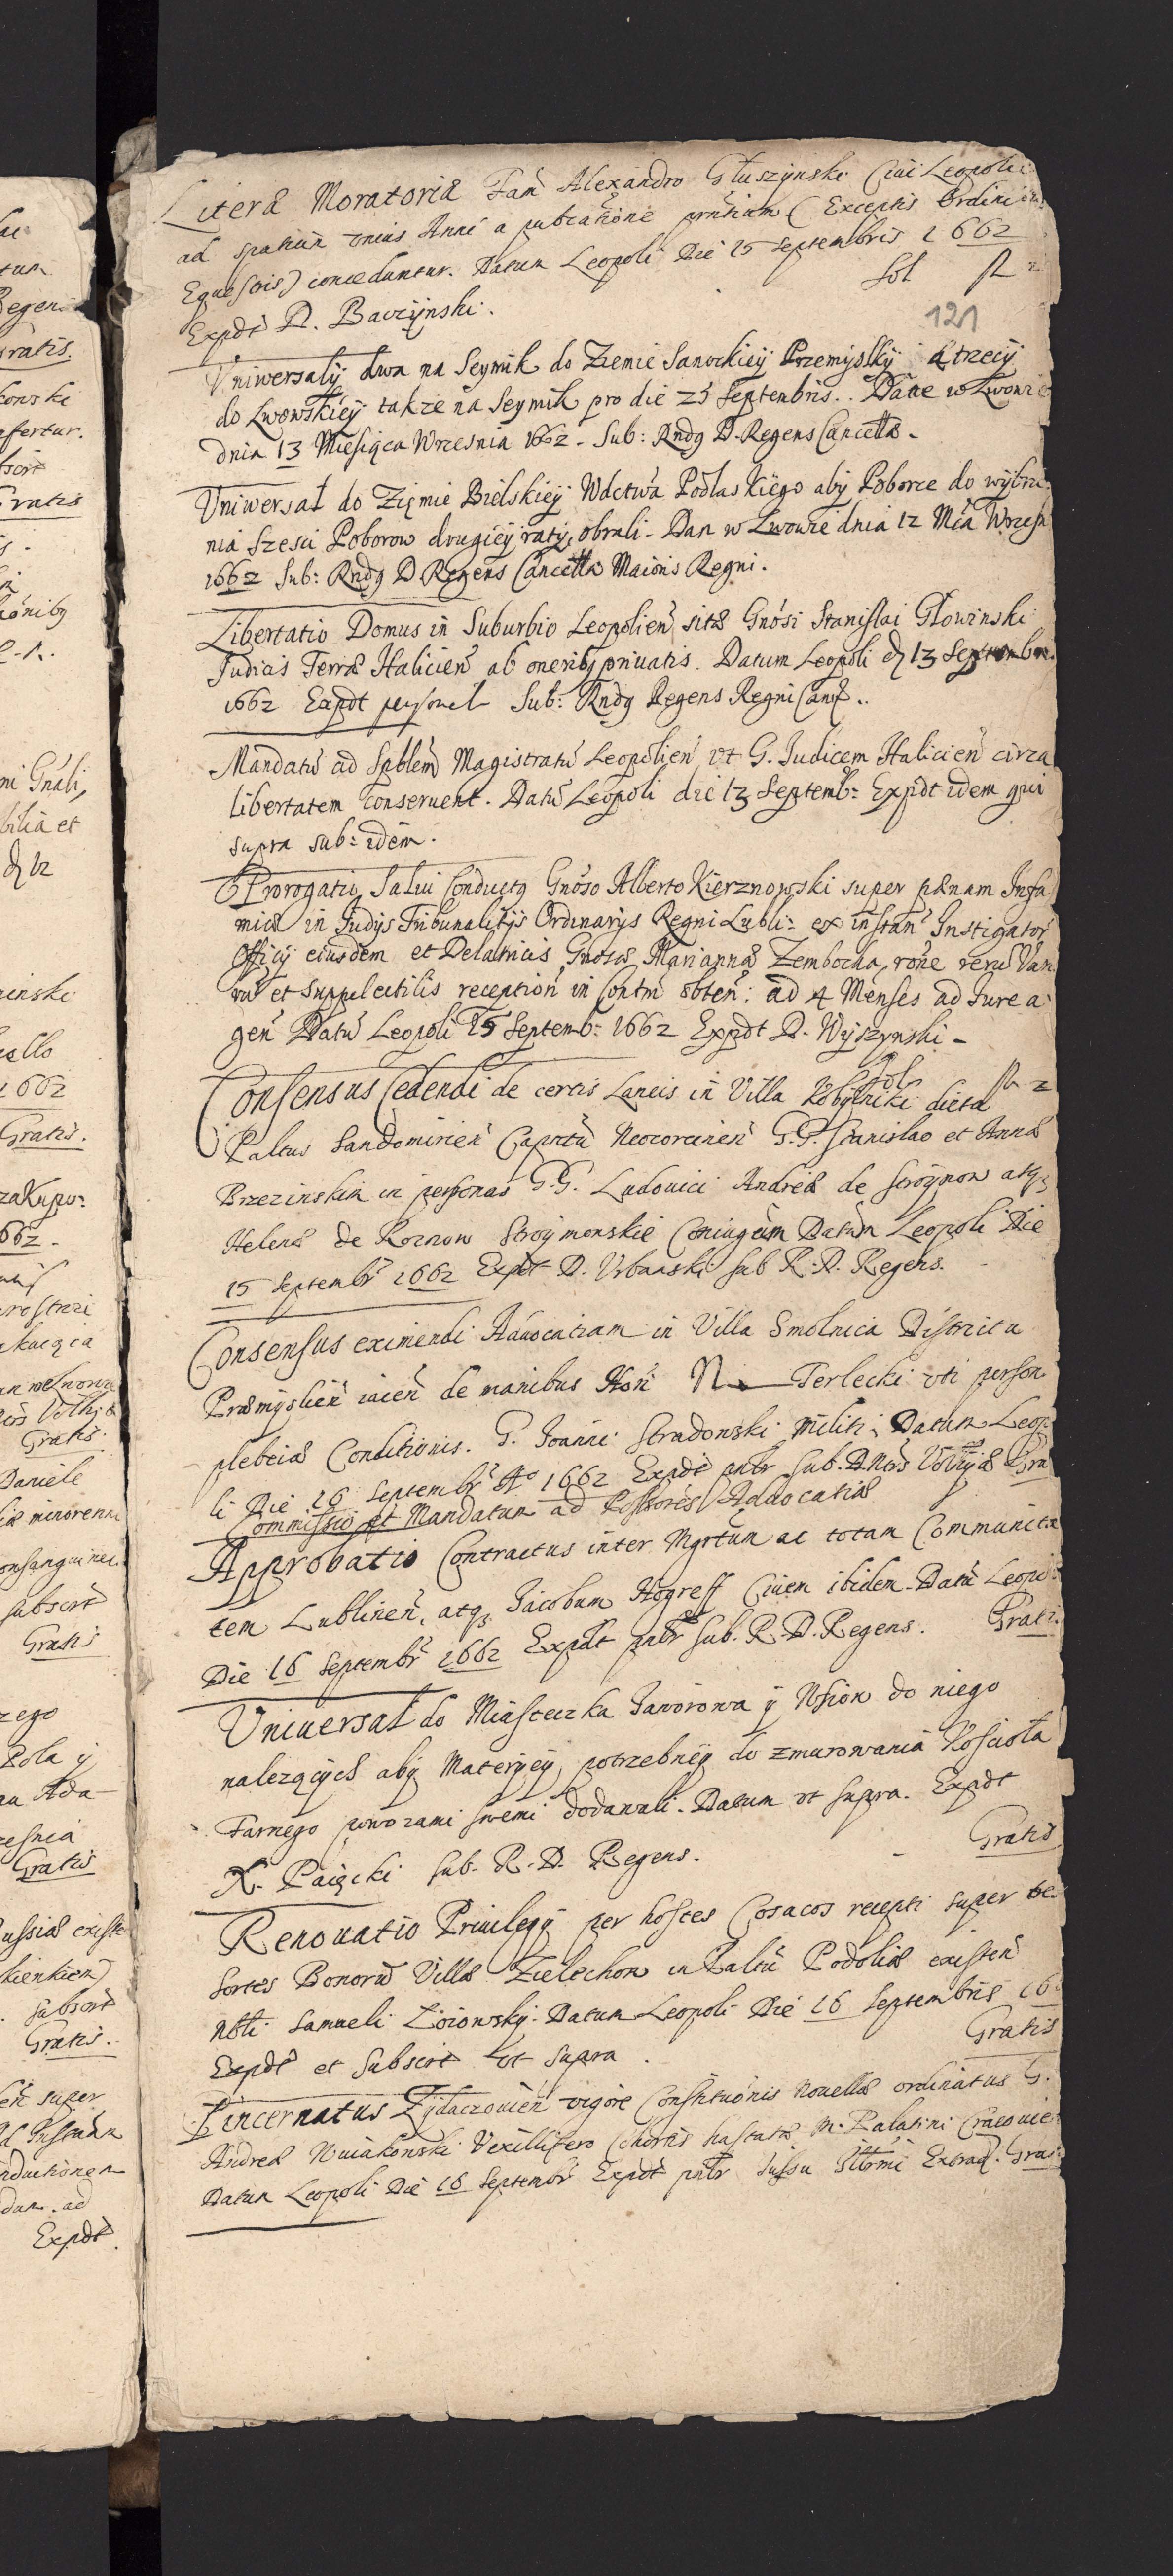 Literæ Moratoriæ Fam Alexandro Głuszynski Ciui Leopoli
ad spatium vnius Anni a publicatione prntium (Exceptis Ordini
Equestris) conceduntur. Datum Leopoli Die 15 Septembris 1662
Expdt D. Baczynski. Sol
121
Vniwersały dwa na Seymik do Ziemie Sanockiey Przemysky a trzeciy
do Lwowskiey takze na Seymik pro die 25 Septembris. Dane w Lwowie
dnia 13 Miesiąca Wrzesnia 1662 - Sub: Rndg D. Regens Cancell.
Vniwersał do Ziemie Bielskiey Wdctwa Podlaskiego aby Poborce do wybra
nia szesci Poborow drugiey raty, obrali - Dan w Lwowie dnia 12 Mca Wrzesn
1662 Sub: Rndg D Regens Cancella Maioris Regni.
Libertatio Domus in Suburbio Leopolien sitæ Gnosi Stanislai Głowinski
Judicis Terræ Halicien ab oneribg priuatis. Datum Leopoli d 13 Septembr.
1662 Expdt personal Sub: Rndg Regens Regni Canc.
Mandatu ad Spblem Magistratu Leopolien vt G. Judicem Halicien circa
libertatem conseruent. Datu Leopoli die 13 Septemb: Expdt idem qui
supra sub: idem.
Prorogatio Salui Conductg Gnoso Alberto Kierznowski super pænam Infa
miæ in Judijs Tribunalitijs Ordinarijs Regni Lubli: ex instan Instigator
Officij eiusdem et Delatricis Gnosæ Mariannæ Zembocka, rone reru Vari
ru et Suppelectilis reception in Contm obten: ad 4 Menses ad Jure a
gen Datu Leopoli 15 Septemb: 1662 Expdt D. Wyszynski -
Sol 2
Consensus Cedendi de certis Laneis in Villa Kobylniki dicta
Paltus Sandomirien Capntu Neocorcinen G.G. Stanislao et Annæ
Brzezinskim in personas G.G. Ludouici Andreæ de Stroynow atq
Helenæ de Roznow Stroymonskie Coniugum Datum Leopoli Die
15 Septembr 1662 Expdt D. Vrbanski sub R. D. Regens.
Consensus eximendi Aduocatiam in Villa Smolnica Districtu
Præmyslien iacen de manibus Hon N. Terlecki vti person
plebeiæ Conditionis. G. Joanni Stradonski Militi. Datum Leopo
li Die 16 Septembr Ao 1662 Expdt pntr sub. D. Gra
Commissio et Mandatum ad Possores Aduocatiæ
Approbatio Contractus inter Mgrtum ac totam Communita
tem Lublinen, atq Jacobum Hogreff Ciuem ibidem - Datu Leopo
Die 16 Septembr 1662 Expdt pntr sub. R. D. Regens. Grati.
Vniuersał do Miasteczka Jaworowa y Wsiow do niego
nalezących aby Materyey potrzebney do zmurowania Kosciola
Farnego powozami swemi dodawali. Datum vt supra. Expdt
X. Paięcki sub. R. D. Regens. Gratis
Renouatio Priuilegij per hostes Cosacos recepti super
sortes Bonoru Villæ Zielechow in Paltu Podoliæ existen
Nbli Samueli Zoiowsky. Datum Leopoli Die 16 Septembris 16
Expdt et Subscrt vt supra. Gratis
Pincernatus Zydaczouien vigore Constitutionis nouellæ ordinatus G.
Andreæ Wuiakowski Vexillifero Cohortis hastatæ M. Palatini Cracouie
Datum Leopoli Die 16 Septembr Expdt pntr Jussu Illrmi Extrad. Gratis